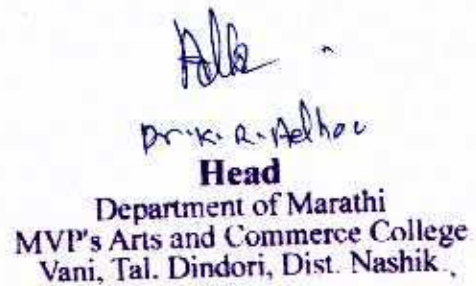 Dr. K. R. Adhav
Head
Department of Marathi
MVP's Arts and Commerce College
Vani, Tal. Dindori, Dist. Nashik.,